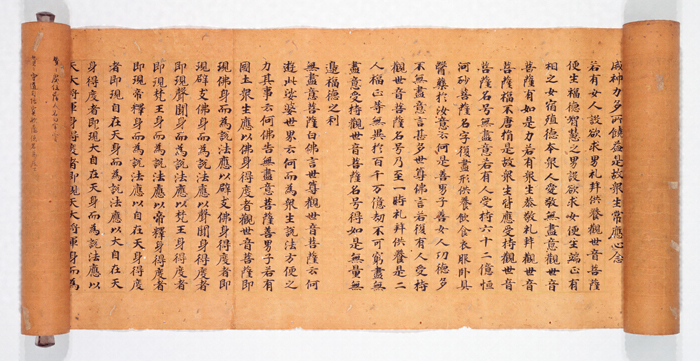 威神力多所饒益是故衆生常應心念
若有女人設欲求男礼拜供養觀世音菩薩
便生福德智慧之男設欲求女便生端正有
相之女宿殖德本衆人愛敬無盡意觀世音
菩薩有如是力若有衆生恭敬礼拜觀世音
菩薩福不唐捐是故衆生皆應受持觀世音
菩薩名号無盡意若有人受持六十二億恒
河沙菩薩名字復盡形供養飲食衣服卧具
醫藥於汝意云何是善男子善女人功德多
不無盡意言甚多世尊佛言若復有人受持
觀世音菩薩名号乃至一時礼拜供養是二
人福正等無異於百千万億劫不可窮盡無
盡意受持觀世音菩薩名号得如是無量無
邊福德之利
無盡意菩薩白佛言世尊觀世音菩薩云何
遊此娑婆世界云何而為衆生說法方便之
力其事云何佛告無盡意菩薩善男子若有
國土衆生應以佛身得度者觀世音菩薩即
現佛身而為說法應以辟支佛身得度者即
現辟支佛身而為說法應以聲聞身得度者
即現聲聞身而為說法應以梵王身得度者
即現梵王身而為說法應以帝釋身得度者
即現帝釋身而為說法應以自在天身得度
者即現自在天身而為說法應以大自在天
身得度者即現大自在天身而為說法應以
天大將軍身得度者即現天大將軍身而為